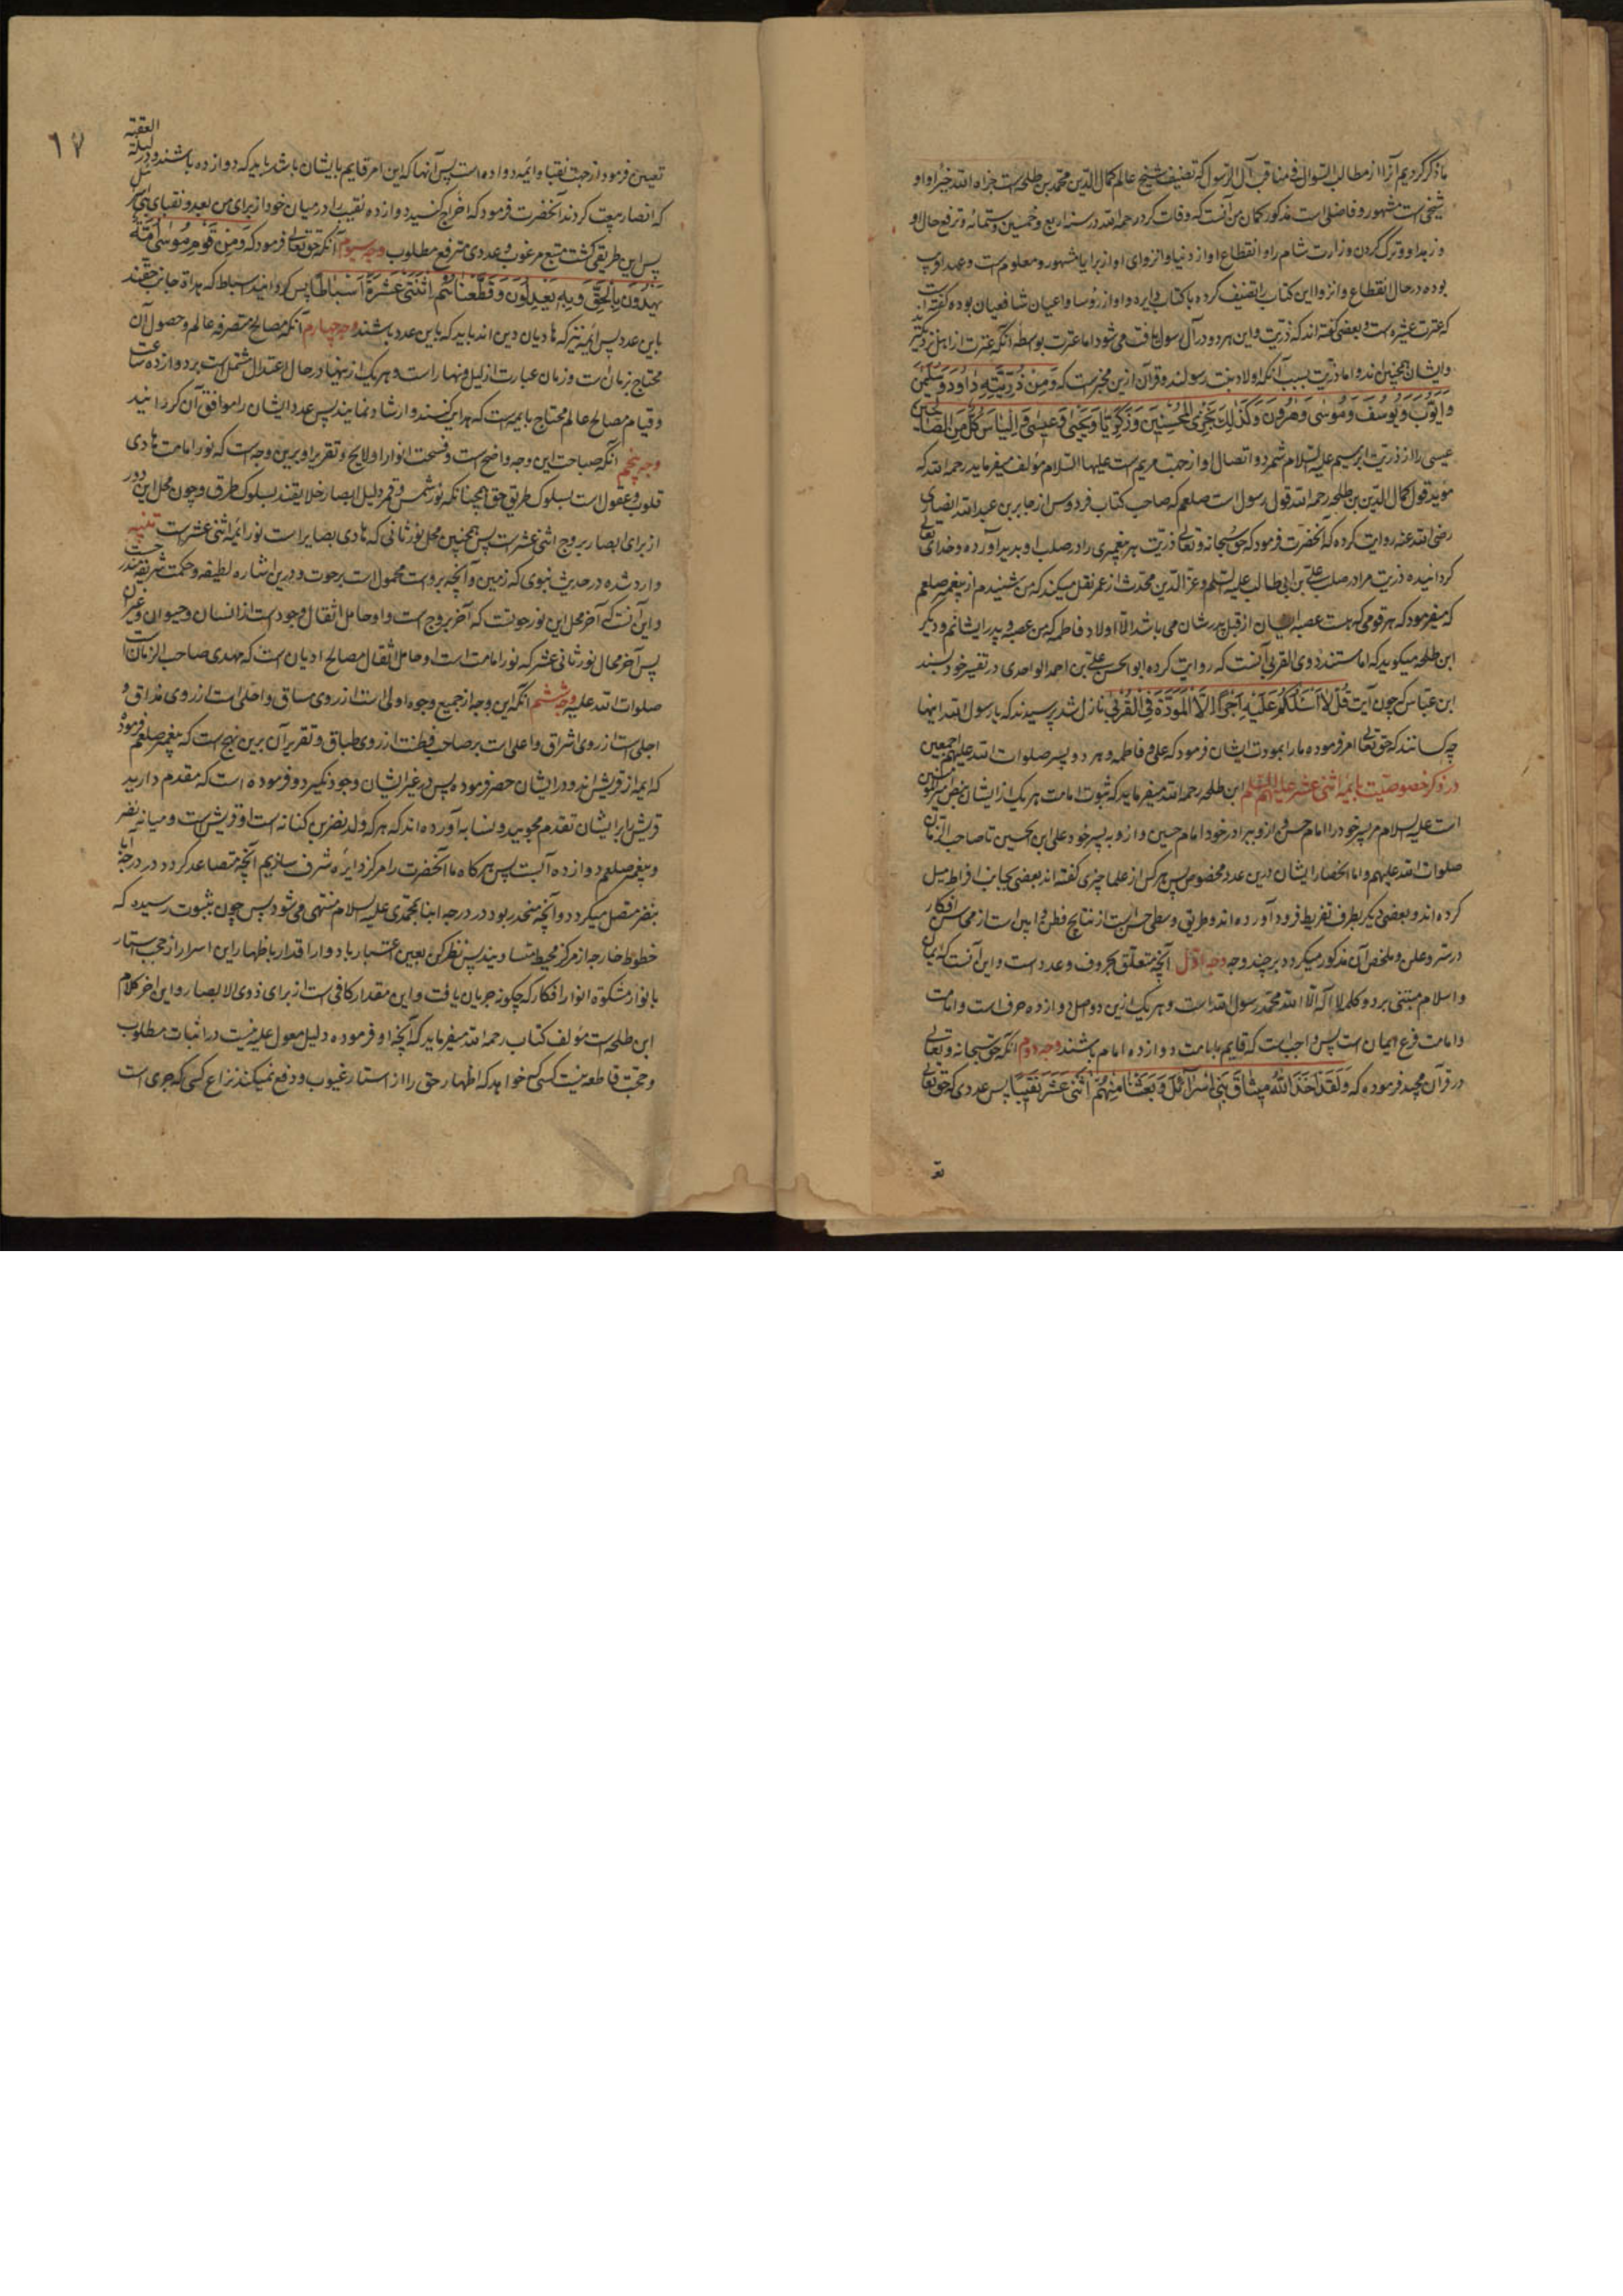 ما ذکر کردیم آنرا از مطالب السؤل فی مناقب آل الرسول که تصنیف شیخ عالم کمال الدین محمد بن طلحه است جزاه الله خیرا و او
شیخی است مشهور و فاضلی است مذکور کمان من آنست که وفات کرد رحمه الله در سنه اربع و خمسین و ستمائه و ترفع حال او
و زهد او و ترک کردن وزارت شام را و انقطاع او از دنیا و انزوای او از برایا مشهور و معلوم است و عهد او قریب
بوده در حال انقطاع و انزوا این کتاب را تصنیف کرده با کتاب دایره و او از رؤسا و اعیان شافعیان بوده کفته اند
که عترت عشیره است و بعضی کفته اند که ذریت و این هر دو در آل رسول یافت می شود اما عترت بوسطه آنکه عترت از اهل نزدیکتر
و ایشان همچنین اند و اما ذریت بسبب آنکه اولاد بنت رسولند و قرآن ازین مخبر است که وَمِن ذُرِّيَّتِهِ دَاوُدَ وَسُلَيْمٰنَ
وَاَيُّوبَ وَيُوسُفَ وَمُوسٰى وَهٰرُونَ وَكَذٰلِكَ نَجْزِى الْمُحْسِنِينَ وَزَكَرِيَّا وَيَحْيٰى وَعِيسٰى وَاِلْيَاسَ كُلٌّ مِنَ الصَّالِحِينَ
عیسی را از ذریت ابرهیم علیه السلام شمرد و اتصال او از جهت مریم است علیها السلام مؤلف میفرماید رحمه الله که
مؤید قول کمال الدین بن طلحه رحمه الله قول رسول است صلعم که صاحب کتاب فردوس از جابر بن عبد الله انصاری
رضی الله عنه روایت کرده که آنحضرت فرمود که حق سبحانه و تعالی ذریت هر پیغمبری را در صلب او بدید آورده و خدای تعالی
کردانیده ذریت مرا در صلب علی بن ابی طالب علیه السلم و عز الدین محدث از عمر نقل میکند که من شنیدم از پیغمبر صلعم
که میفرمود که هر قومی که هست عصبه ایشان از قبل پدرشان می باشد الا اولاد فاطمه که من عصبه و پدر ایشانم و دیگر
ابن طلحه میکوید که اما مستند ذوی القربی آنست که روایت کرده ابو الحسن علی بن احمد الواحدی در تفسیر خود بسند
ابن عباس که چون آیت قُلْ لَا اَسْئَلُكُمْ عَلَيْهِ اَجْرًا اِلَّا الْمَوَدَّةَ فِى الْقُرْبٰى نازل شد پرسیدند که یا رسول الله اینها
چه کسانند که حق تعالی امر فرموده ما را بمودت ایشان فرمود که علی و فاطمه و هر دو پسر صلوات الله علیهم اجمعین
در ذکر خصوصیت بایمه اثنی عشر علیهم السلم ابن طلحه رحمه الله میفرماید که ثبوت امامت هر یک از ایشان بنص
است علیه السلام مر پسر خود را امام حسن و ازو ببرادر خود امام حسین و ازو به پسر خود علی ابن الحسین تا صاحب الزمان
صلوات الله علیهم و اما انحصار ایشان درین عدد مخصوص پس هر کس از علما چیزی کفته اند بعضی بجانب افراط میل
کرده اند و بعضی دیکر بطرف تفریط فرود آورده اند و طریق وسطی حسن است از نتایج فطن و این است از محاسن افکار
در سر و علن و ملخص آن مذکور میکردد بر چند وجه وجه اوّل آنچه متعلق بحروف و عدد است و این آنست که ایمان
و اسلام مبتنی بر دو کلمه لا اله الا الله محمد رسول الله است و هر یک ازین دو اصل دوازده حرف است و امامت
و امامت فرع ایمان است پس واجب است که قایم بامامت دوازده امام باشند وجه دوم آنکه حق سبحانه و تعالی
در قرآن مجید فرموده که وَلَقَدْ اَخَذَ اللّٰهُ مِيثَاقَ بَنِى اِسْرَائِلَ وَبَعَثْنَا مِنْهُمُ اثْنَىْ عَشَرَ نَقِيبًا پس عددی که حق تعالی
تعـ
٦٧
تعیین فرمود از جهت نقبا و ایمه دوازده است پس آنها که این امر قایم بایشان باشد باید که دوازده باشند و در لیلة العقبه
که انصار بیعت کردند آنحضرت فرمود که اخراج کنید دوازده نقیب را در میان خود از برای من بعدد نقبای بنی اسرائیل
پس این طریقی کشت متبع مرغوب و عددی مترفع مطلوب وجه سیوم آنکه حق تعالی فرمود که وَمِنْ قَوْمِ مُوسٰى اُمَّةٌ
يَهْدُونَ بِالْحَقِّ وَبِهِ يَعْدِلُونَ وَقَطَّعْنَاهُمُ اثْنَتَىْ عَشْرَةَ اَسْبَاطًا پس کردانید اسباط که هداة جانب حقند
باین عدد پس ایمه نیز که هادیان دین اند باید که باین عدد باشند وجه چهارم آنکه مصالح متصرفه عالم و حصول آن
محتاج بزمان است و زمان عبارت از لیل و نهار است و هر یک ازینها در حال اعتدال مشتمل است بر دوازده ساعت
و قیام مصالح عالم محتاج بایمه است که هدایت کنند و ارشاد نمایند پس عدد ایشان را موافق آن کردانید
وجه پنجم آنکه صباحت این وجه واضح است و فسحت انوار او لایح و تقریر او برین وجه است که نور امامت هادی
قلوب و عقول است بسلوک طریق حق همچنانکه نور شمس و قمر دلیل ابصار خلایقند بسلوک طرق و چون محل این دو نور
از برای ابصار بروج اثنی عشر است پس همچنین محل نور ثانی که هادی بصایر است نور ایمه اثنی عشر است تنبیه
وارد شده در حدیث نبوی که زمین و آنچه بروست محمول است بر حوت و درین اشاره لطیفه و حکمت شریفه
و این آنست که آخر محل این نور حوتست که آخر بروج است و او حامل اثقال وجود است از انسان و حیوان و غیر آن
پس آخر محال نور ثانی عشر که نور امامت است او حامل اثقال مصالح ادیان است که مهدی صاحب الزمان است
صلوات الله علیه وجه ششم آنکه این وجه از جمیع وجوه اولی است از روی مساق و احلی است از روی مذاق و
اجلی است از روی اشراق و اعلی است بر صاحب فطنت از روی طباق و تقریر آن برین نهج است که پیغمبر صلعم فرموده
که ایمه از قریش اند و در ایشان حصر فرموده پس در غیر ایشان وجود نکیرد و فرموده است که مقدم دارید
قریش را بر ایشان تقدم مجویید و نسابه آورده اند که هر که ولد نضر بن کنانه است او قریش است و میانه نضر
و پیغمبر صلعم دوازده آب است پس هرکاه ما آنحضرت را مرکز دایره شرف سازیم آنچه متصاعد کردد در درجه آبا
بنضر متصل میکردد و آنچه منحدر بود در درجه ابنا بمحمد مهدی علیه السلام منتهی می شود پس چون بثبوت رسیده که
خطوط خارجه از مرکز بمحیط متساویند پس نظر کن بعین اعتبار بادوار اقدار باظهار این اسرار از حجب استار
بانوار مشکوة انوار افکار که چکونه جریان یافت و این مقدار کافی است از برای ذوی الابصار و این آخر کلام
ابن طلحه است مؤلف کتاب رحمه الله میفرماید که آنچه او فرموده دلیل معول علیه نیست در اثبات مطلوب
و حجت قاطعه نیست کسی که خواهد که اظهار حق را از استار غیوب و دفع نمیکند نزاع کسی که جری است